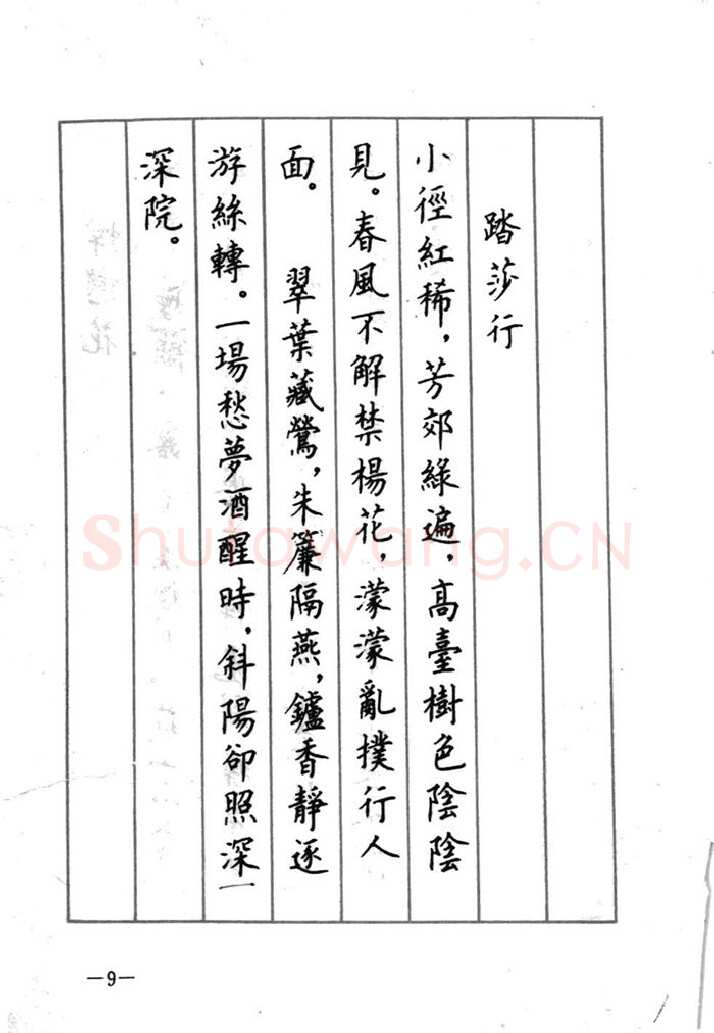 踏莎行
小徑紅稀，芳郊綠遍，高臺樹色陰陰
見。春風不解禁楊花，濛濛亂撲行人
面。　翠葉藏鶯，朱簾隔燕，鑪香靜逐
游絲轉。一場愁夢酒醒時，斜陽卻照深
深院。
Shufawang.CN
—9—